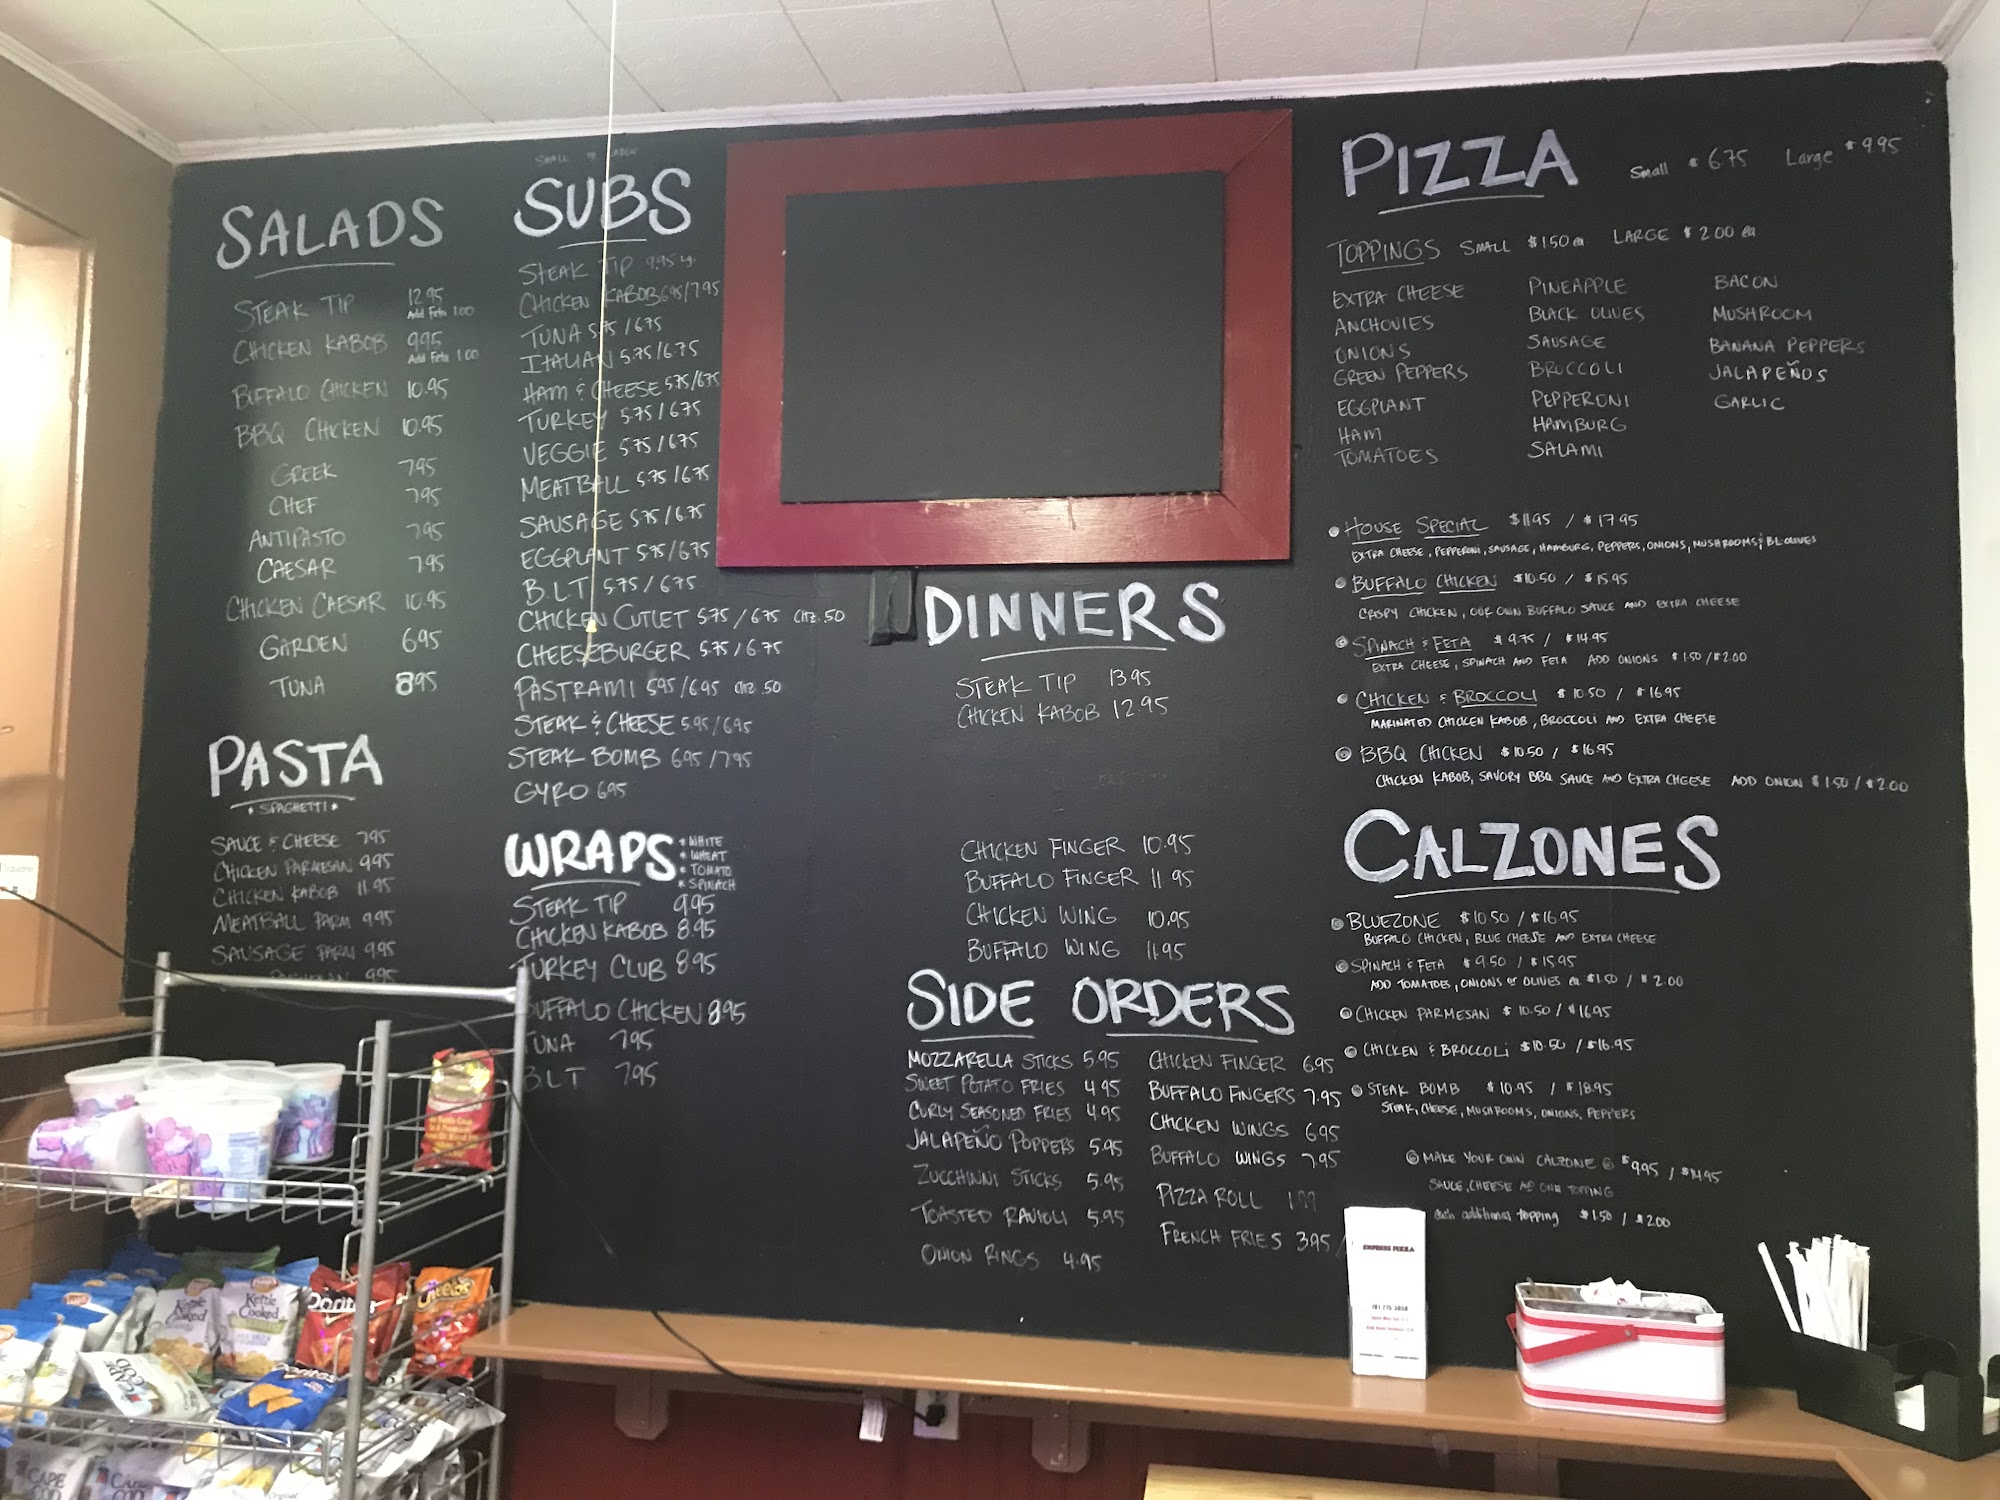 SALADS
STEAK TIP 12.95
Add Feta 1.00
CHICKEN KABOB 9.95
Add Feta 1.00
BUFFALO CHICKEN 10.95
BBQ CHICKEN 10.95
GREEK 7.95
CHEF 7.95
ANTIPASTO 7.95
CAESAR 7.95
CHICKEN CAESAR 10.95
GARDEN 6.95
TUNA 8.95
PASTA
• SPAGHETTI •
SAUCE & CHEESE 7.95
CHICKEN PARMESAN 9.95
CHICKEN KABOB 11.95
MEATBALL PARM 9.95
SAUSAGE PARM 9.95
9.95
SMALL LARGE
SUBS
STEAK TIP 9.95 lg.
CHICKEN KABOB 6.95/7.95
TUNA 5.75/6.75
ITALIAN 5.75/6.75
HAM & CHEESE 5.75/6.75
TURKEY 5.75/6.75
VEGGIE 5.75/6.75
MEATBALL 5.75/6.75
SAUSAGE 5.75/6.75
EGGPLANT 5.75/6.75
B.L.T 5.75/6.75
CHICKEN CUTLET 5.75/6.75 CHZ .50
CHEESEBURGER 5.75/6.75
PASTRAMI 5.95/6.95 CHZ .50
STEAK & CHEESE 5.95/6.95
STEAK BOMB 6.95/7.95
GYRO 6.95
WRAPS
• WHITE
• WHEAT
• TOMATO
• SPINACH
STEAK TIP 9.95
CHICKEN KABOB 8.95
TURKEY CLUB 8.95
BUFFALO CHICKEN 8.95
TUNA 7.95
B.L.T 7.95
DINNERS
STEAK TIP 13.95
CHICKEN KABOB 12.95
CHICKEN FINGER 10.95
BUFFALO FINGER 11.95
CHICKEN WING 10.95
BUFFALO WING 11.95
SIDE ORDERS
MOZZARELLA STICKS 5.95
SWEET POTATO FRIES 4.95
CURLY SEASONED FRIES 4.95
JALAPEÑO POPPERS 5.95
ZUCCHINNI STICKS 5.95
TOASTED RAVIOLI 5.95
ONION RINGS 4.95
CHICKEN FINGER 6.95
BUFFALO FINGERS 7.95
CHICKEN WINGS 6.95
BUFFALO WINGS 7.95
PIZZA ROLL
FRENCH FRIES 3.95 /
PIZZA Small $6.75 Large $9.95
TOPPINGS SMALL $1.50 ea LARGE $2.00 ea
EXTRA CHEESE
ANCHOVIES
ONIONS
GREEN PEPPERS
EGGPLANT
HAM
TOMATOES
PINEAPPLE
BLACK OLIVES
SAUSAGE
BROCCOLI
PEPPERONI
HAMBURG
SALAMI
BACON
MUSHROOM
BANANA PEPPERS
JALAPEÑOS
GARLIC
HOUSE SPECIAL $11.95 / $17.95
EXTRA CHEESE, PEPPERONI, SAUSAGE, HAMBURG, PEPPERS, ONIONS, MUSHROOMS, & BL OLIVES
BUFFALO CHICKEN $10.50 / $15.95
CRISPY CHICKEN, OUR OWN BUFFALO SAUCE AND EXTRA CHEESE
SPINACH & FETA $9.75 / $14.95
EXTRA CHEESE, SPINACH AND FETA ADD ONIONS $1.50/$2.00
CHICKEN & BROCCOLI $10.50 / $16.95
MARINATED CHICKEN KABOB, BROCCOLI AND EXTRA CHEESE
BBQ CHICKEN $10.50 / $16.95
CHICKEN KABOB, SAVORY BBQ SAUCE AND EXTRA CHEESE ADD ONION $1.50/$2.00
CALZONES
BLUEZONE $10.50 / $16.95
BUFFALO CHICKEN, BLUE CHEESE AND EXTRA CHEESE
SPINACH & FETA $9.50 / $15.95
ADD TOMATOES, ONIONS or OLIVES ea $1.50 / $2.00
CHICKEN PARMESAN $10.50 / $16.95
CHICKEN & BROCCOLI $10.50 / $16.95
STEAK BOMB $10.95 / $18.95
STEAK, CHEESE, MUSHROOMS, ONIONS, PEPPERS
MAKE YOUR OWN CALZONE $9.95 / $14.95
SAUCE, CHEESE AND ONE TOPPING
Each additional topping $1.50 / $2.00
EMPRESS PIZZA
Kettle Cooked
Kettle Cooked
Doritos
Cheetos
Doritos
CAPE COD
CAPE COD
CAPE COD